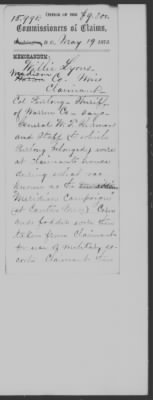 15.991. OFFICE OF THE $9.300
Commissioners of Claims,
May 19 187
MEMORANDUM:
Willis Lyons
Madison Co. Miss
Claimant
Col Furlong Sheriff
of Warren Co. says
General W. T. Sherman
and Staff (to which
Furlong belonged) were
at claimants house
during what was
known as the
Meridian Campaign
(at Canton Miss). Corn
and fodder were then
taken from Claimant
for use of military es-
corts Claimant